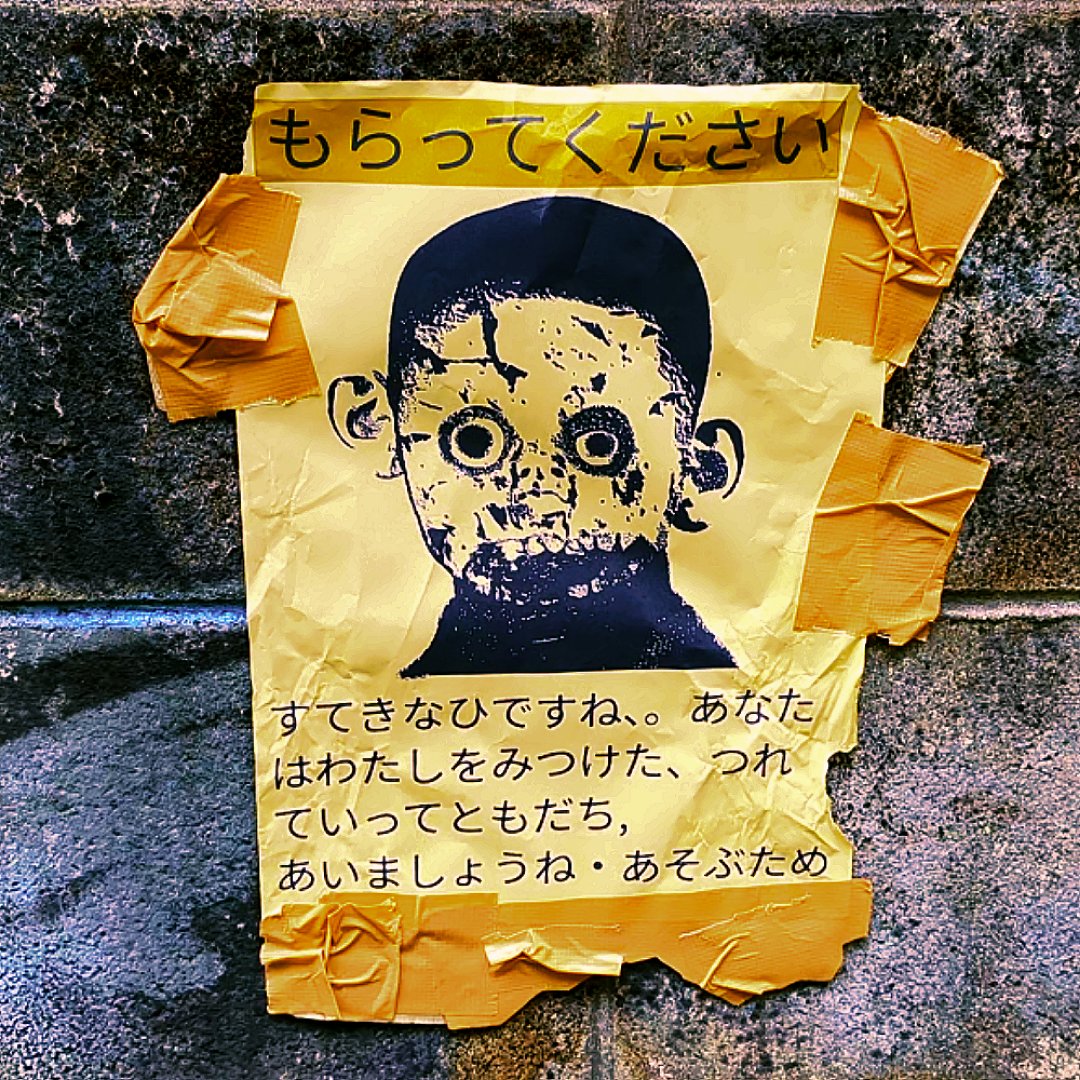 もらってください
すてきなひですね、。あなた
はわたしをみつけた、つれ
ていってともだち,
あいましょうね・あそぶため